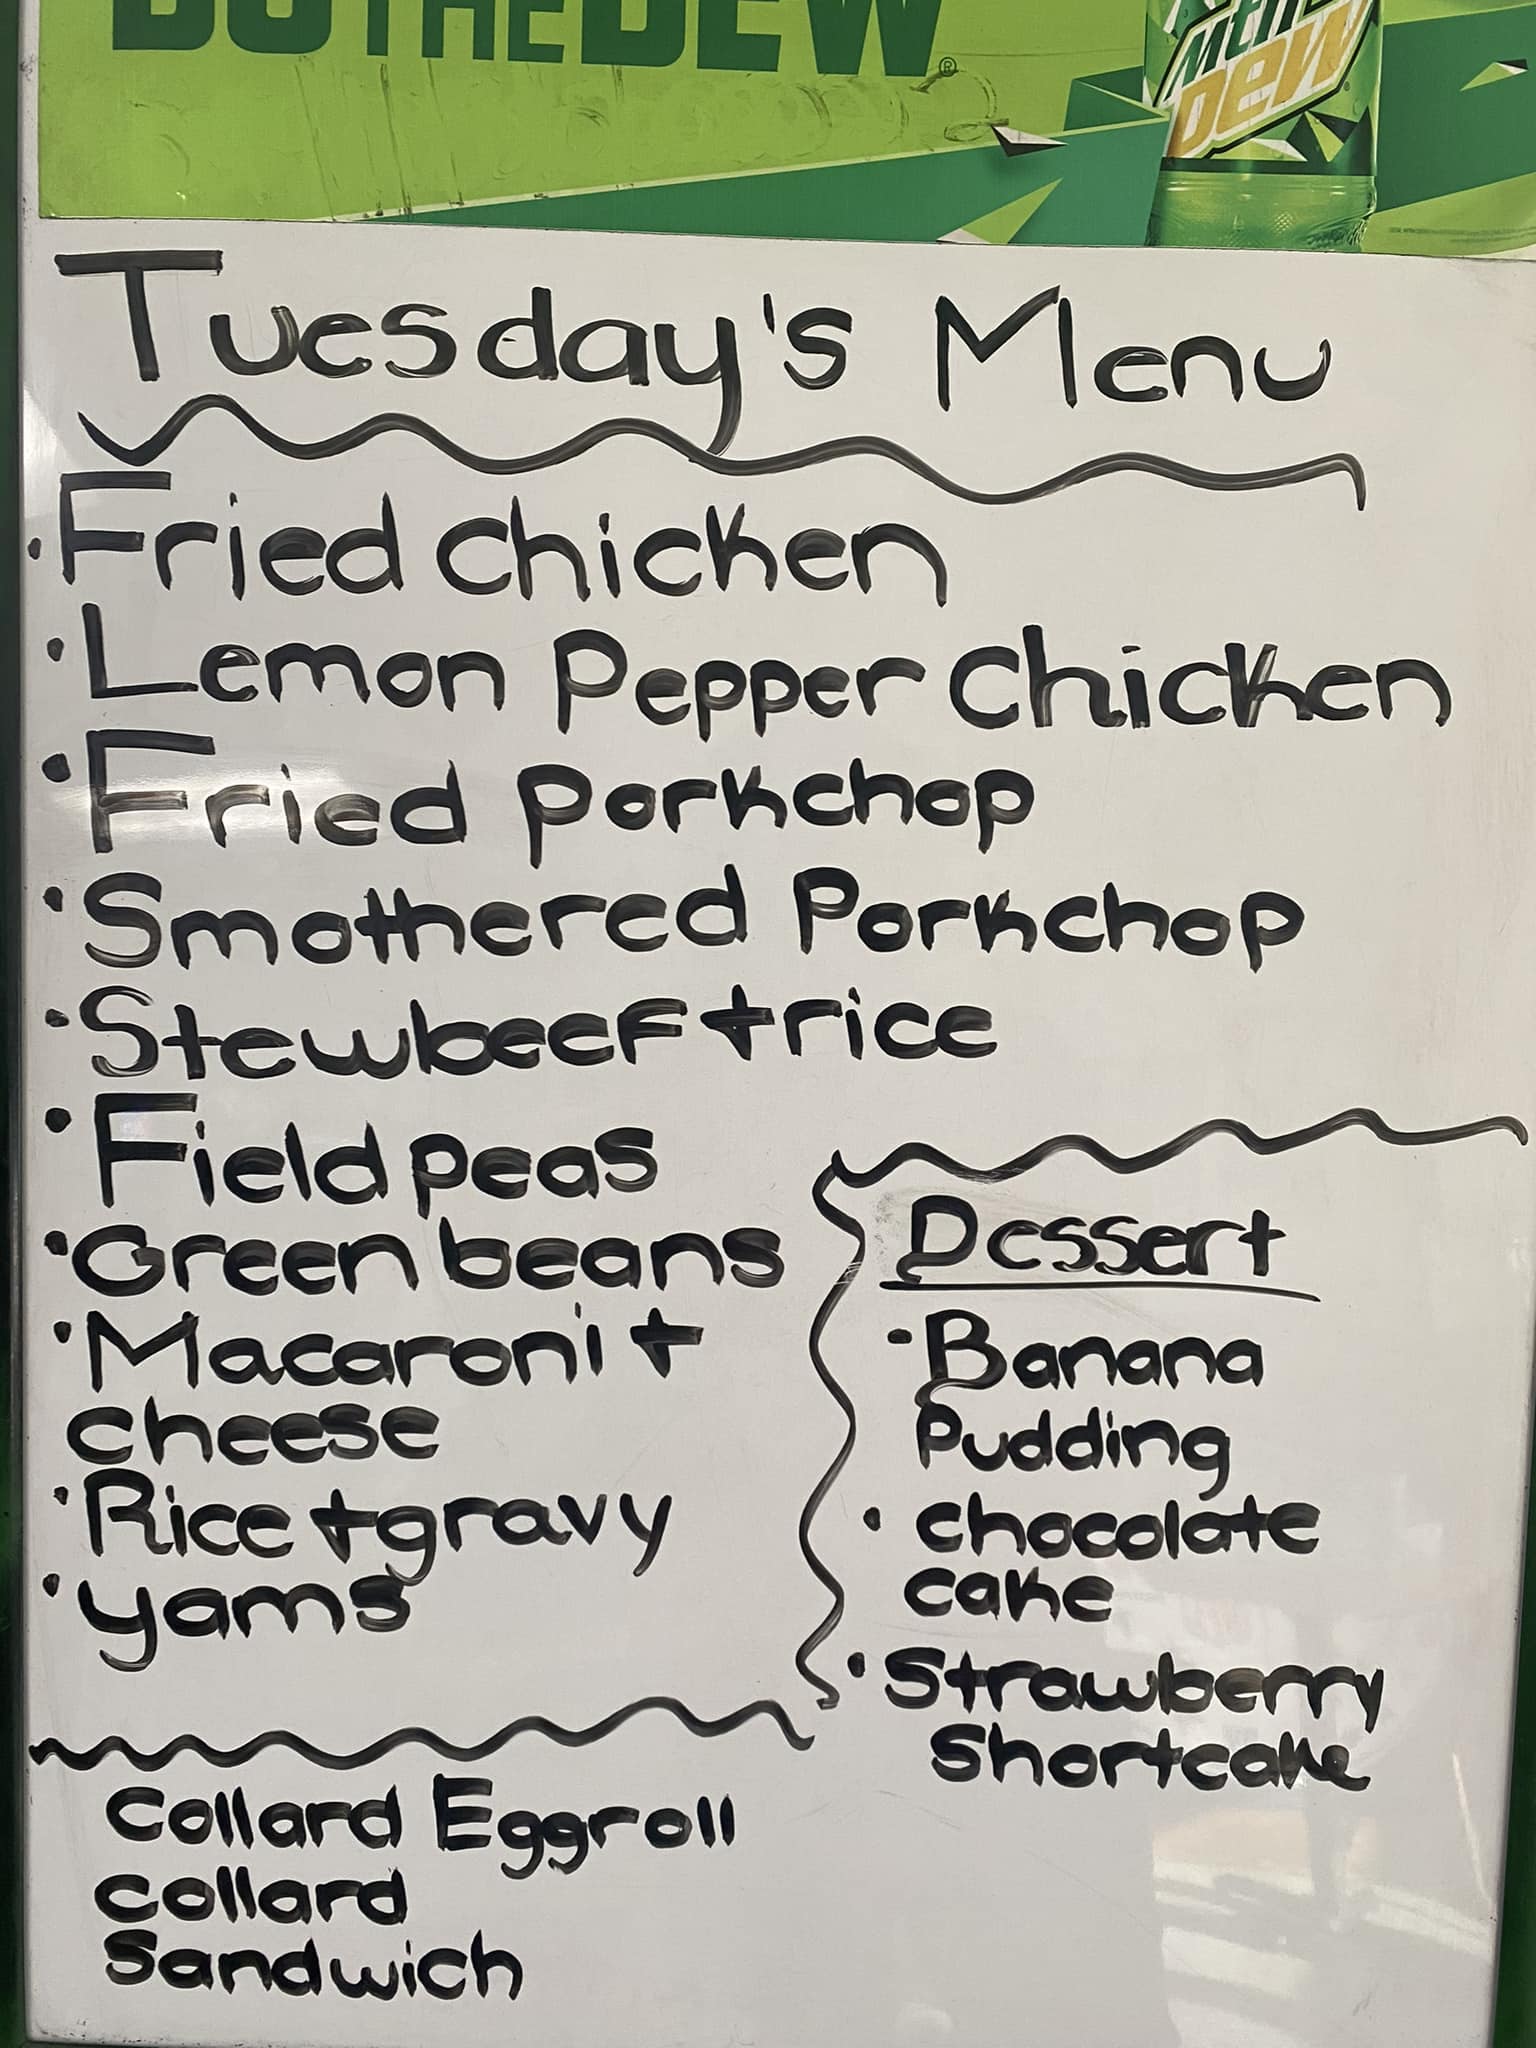 DO THE DEW®
Mtn
Dew
Tuesday's Menu
· Fried chicken
· Lemon Pepper Chicken
· Fried porkchop
· Smothered Porkchop
· Stewbeef + rice
· Field peas
· Green beans
· Macaroni +
cheese
· Rice + gravy
· yams
Dessert
· Banana
Pudding
· chocolate
cake
· Strawberry
Shortcake
Collard Eggroll
collard
Sandwich